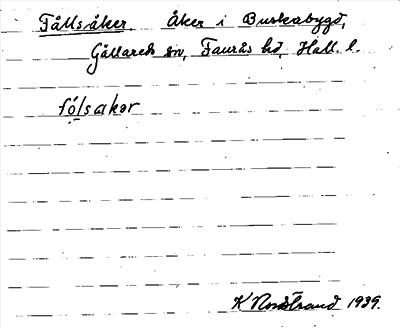 Fållsåker. Åker i Buskabygd,
Gällareds sn, Faurås hd, Hall. l.
fólsakər
K Nordstrand 1939.